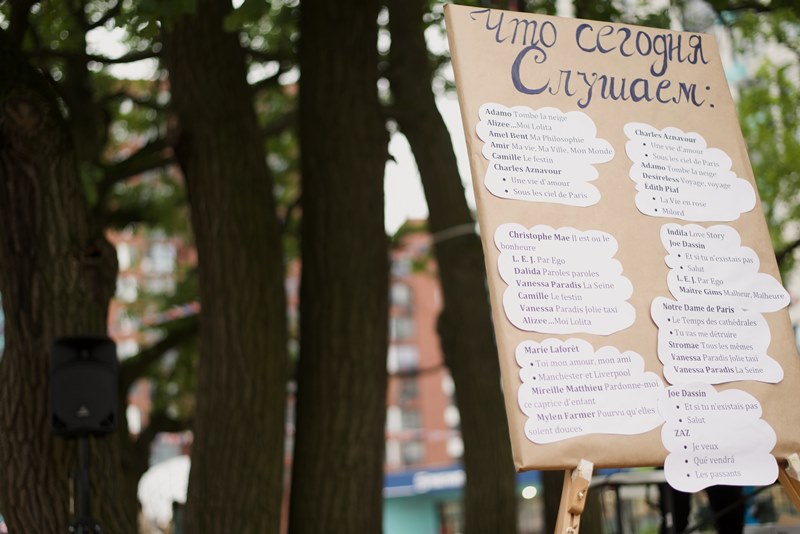 Что сегодня
Слушаем:
Adamo Tombe la neige
Alizee...Moi Lolita
Amel Bent Ma Philosophie
Amir Ma vie, Ma Ville, Mon Monde
Camille Le festin
Charles Aznavour
• Une vie d'amour
• Sous les ciel de Paris
Charles Aznavour
• Une vie d'amour
• Sous les ciel de Paris
Adamo Tombe la neige
Desireless Voyage, voyage
Édith Piaf
• La Vie en rose
• Milord
Christophe Mae Il est ou le
bonheure
L. E. J. Par Ego
Dalida Paroles paroles
Vanessa Paradis La Seine
Camille Le festin
Vanessa Paradis Jolie taxi
Alizee...Moi Lolita
Indila Love Story
Joe Dassin
• Et si tu n'existais pas
• Salut
L. E. J. Par Ego
Maitre Gims Malheur, Malheure
Notre Dame de Paris
• Le Temps des cathédrales
• Tu vas me détruire
Stromae Tous les mêmes
Vanessa Paradis Jolie taxi
Vanessa Paradis La Seine
Marie Laforêt
• Toi mon amour, mon ami
• Manchester et Liverpool
Mireille Matthieu Pardonne-moi
ce caprice d'enfant
Mylen Farmer Pourvu qu'elles
soient douces
Joe Dassin
• Et si tu n'existais pas
• Salut
ZAZ
• Je veux
• Qué vendrá
• Les passants